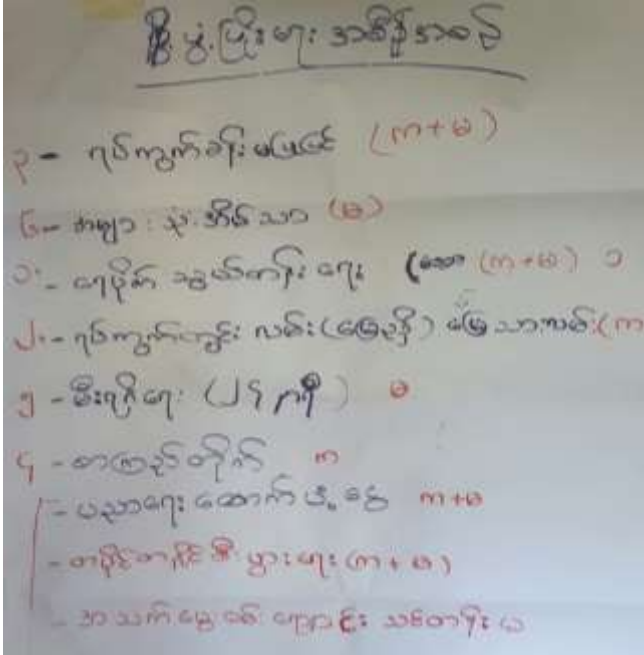 ဖွံ့ဖြိုးရေး အစီအစဉ်
၃ - ရပ်ကွက်ခန်းမပြုပြင် (က+မ)
၆ - အများသုံးအိမ်သာ (မ)
၁ - ရေပိုက် သွယ်တန်းရေး (က+မ) ၁
၂ - ရပ်ကွက်တွင်း လမ်း (မြေညှိ) မြေသားလမ်း (က
၅ - မီးရရှိရေး (၂၄ နာရီ) မ
၄ - စာကြည့်တိုက် က
- ပညာရေး ထောက်ပံ့ငွေ က+မ
- တစ်ပိုင်တစ်နိုင် စီးပွားရေး (က+မ)
- အသက်မွေးဝမ်းကျောင်း သင်တန်း